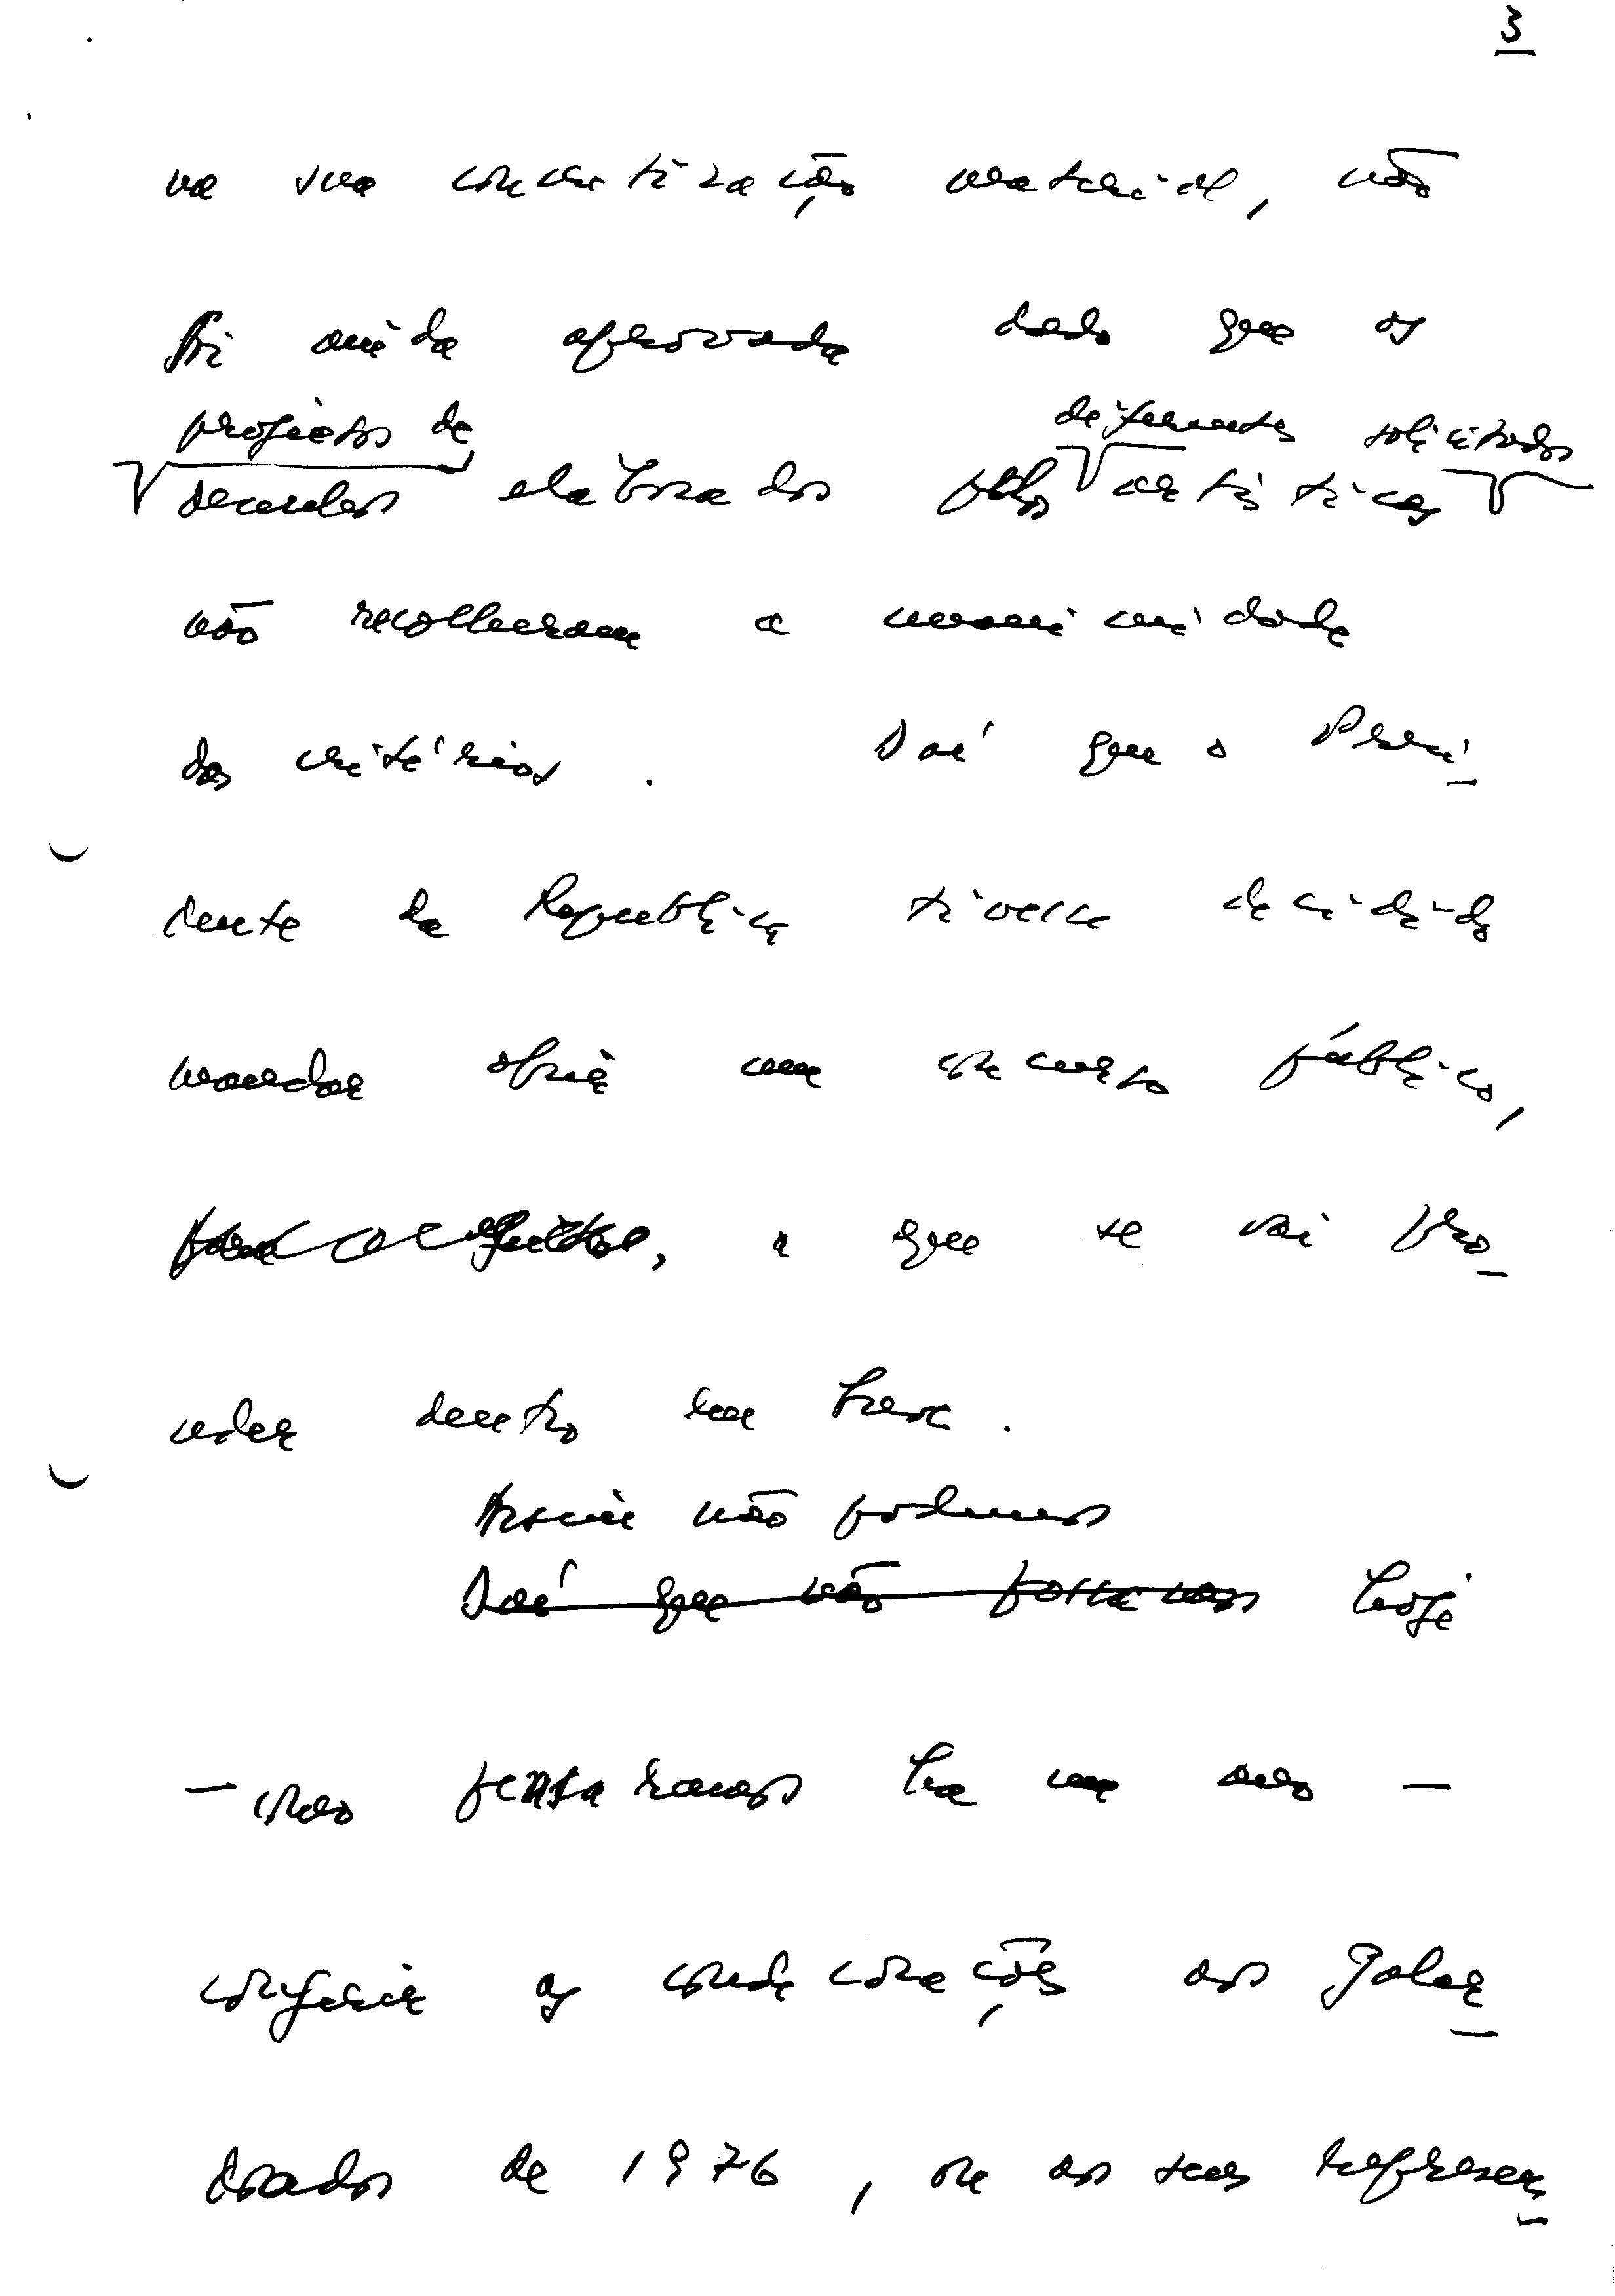 3
na sua concretização material, não
foi ainda aprovada dado que os
projectos de diferentes solicitados
decretos elaborados pelos artísticas
não recolheram a unanimidade
dos critérios. Daí que o Presi_
dente da Republica tivesse decidido
mandar abrir um concurso público,
a que se vai pro_
ceder dentro em breve.
Assim não podemos
Daí que não possamos hoje
— como pensaramos há um ano —
conferir as condecorações aos Galar_
doados de 1976, ou aos seus represen_